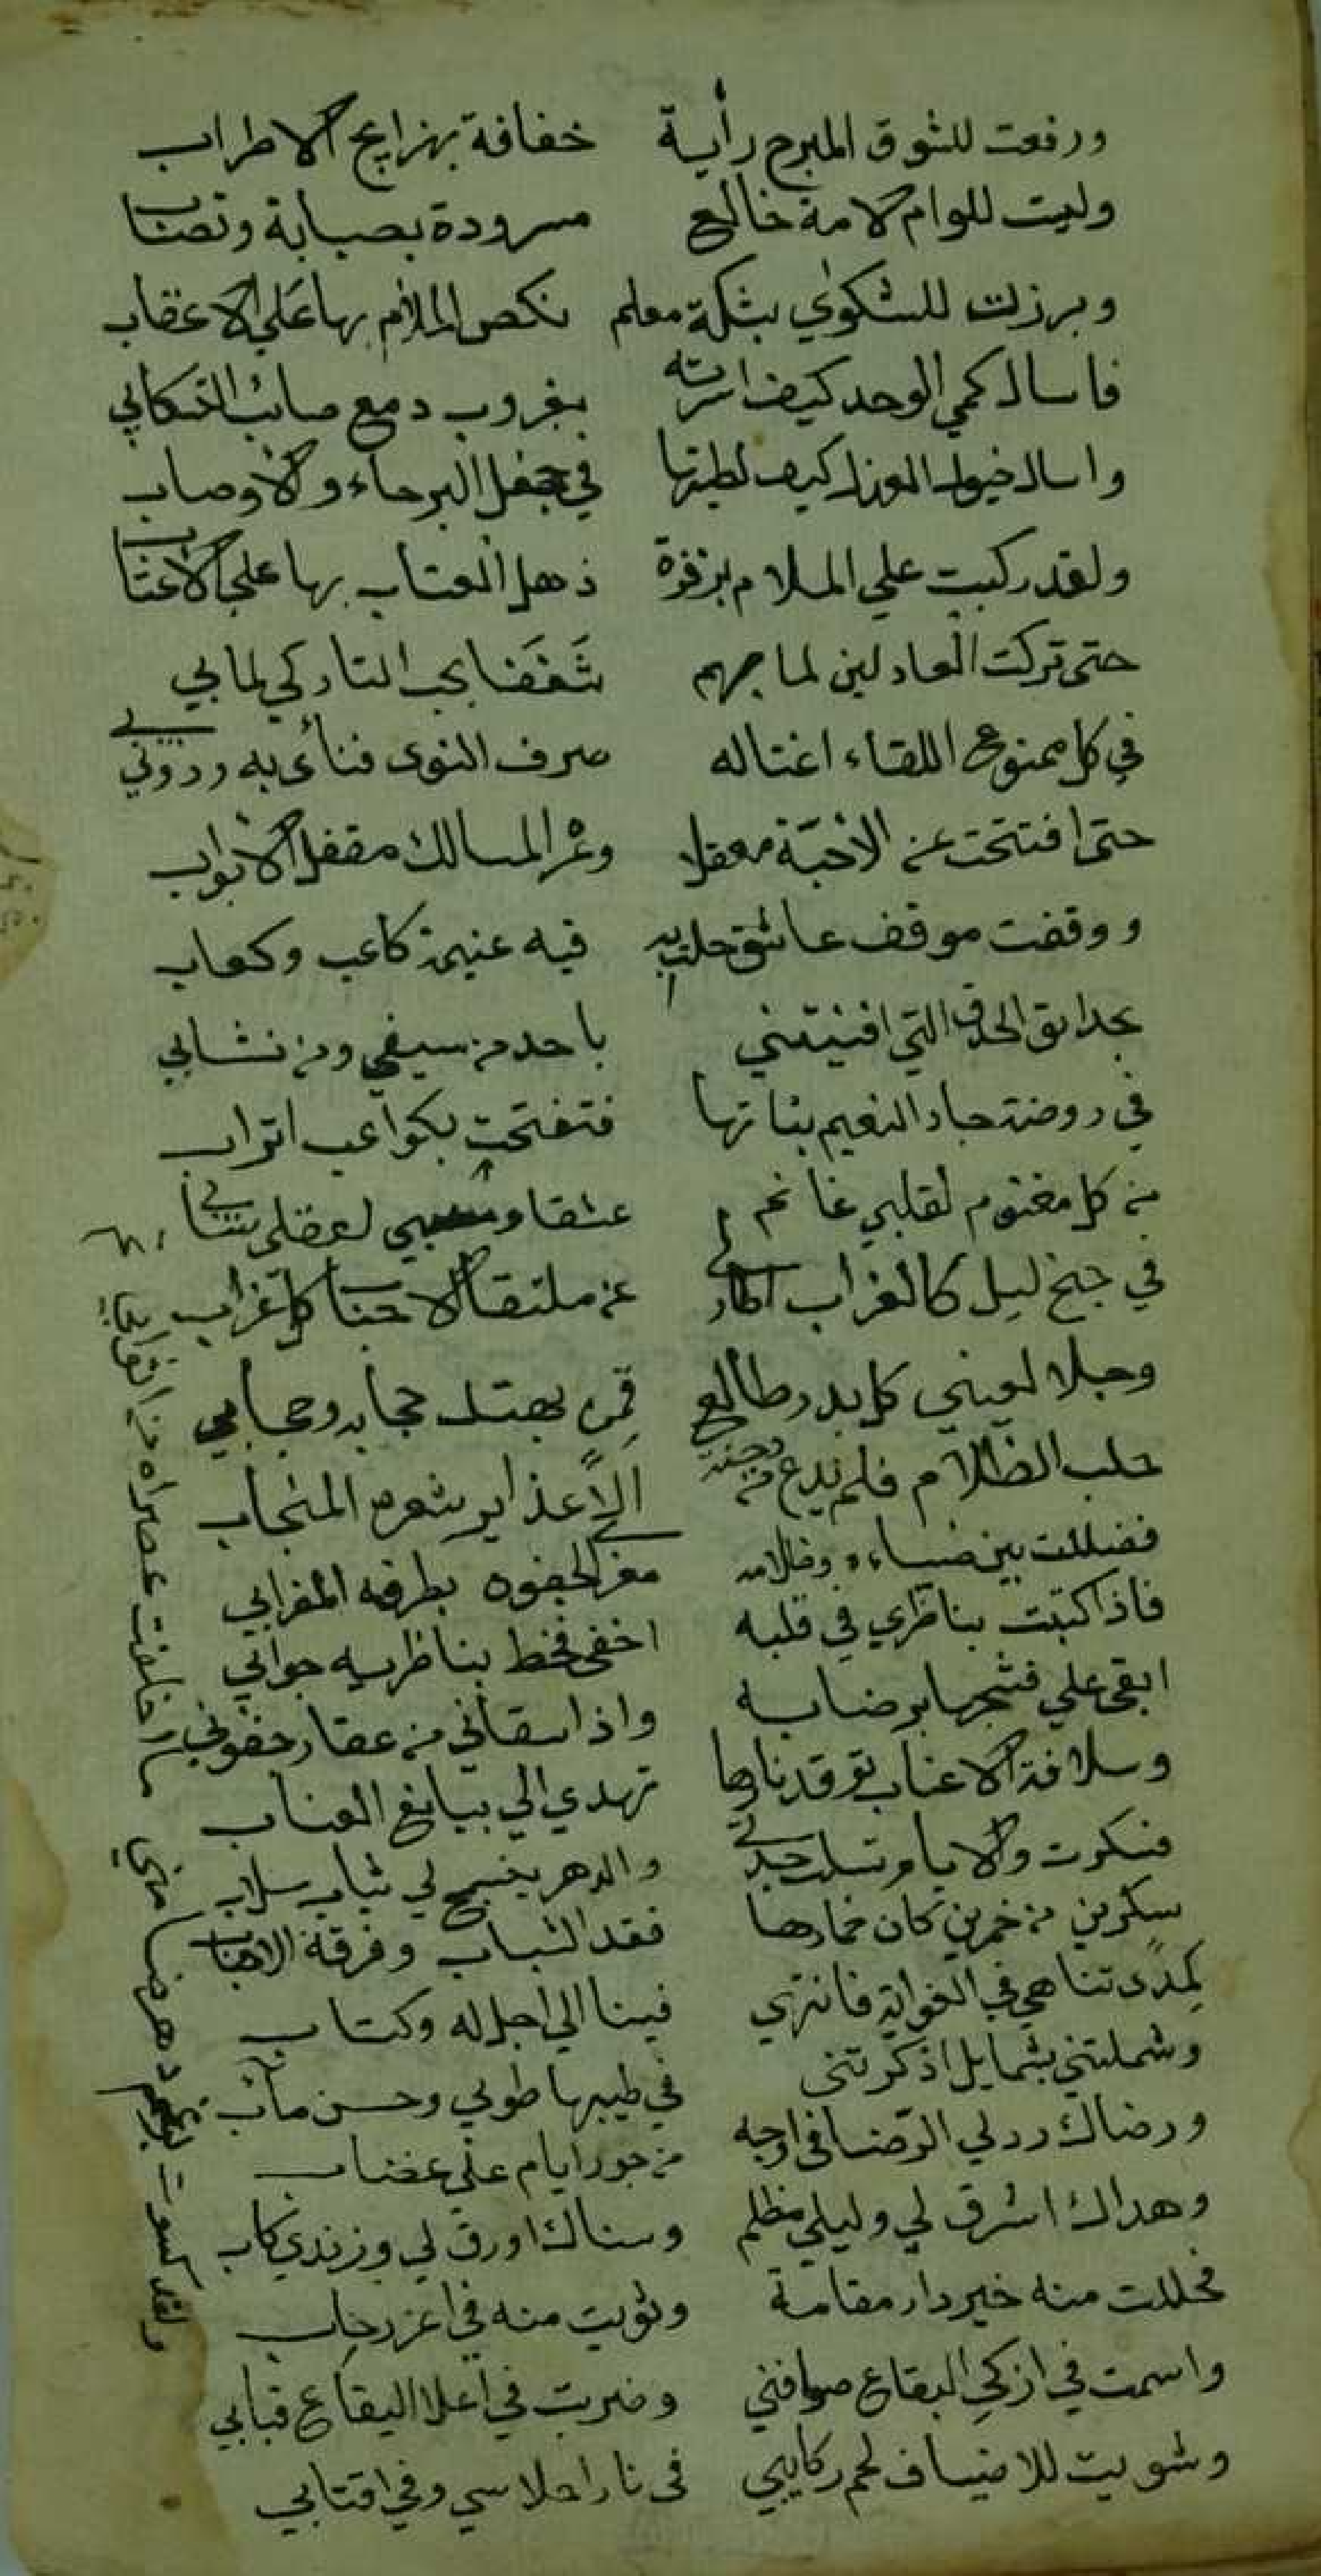 ورفعت للشوق المبرح رأية خفاقة بهزايج الاطراب
ولبست للوام لامة خالع مسرودة بصبابة وتصاب
وبرزت للشكوى بشكة معلم نكص الملام بها على الاعقاب
فاسال كمي الوجد كيف اثرته بغروب دمع صائب التسكابي
واسال خيول العزل كيف لطيتها في جحفل البرحاء والاوصاب
ولقد ركبت علي الملام بزفرة ذهل العتاب بها على الاعتاب
حتى تركت العاذلين لما بهم شغفا بحب التاركي لما بي
في كل ممنوع اللقاء اغتاله صرف النوى فنأى به ودنوني
حتى افتتحت عن الاحبة معقلا وعر المسالك مقفل الابواب
ووقفت موقف عاشق حلت به فيه غنيمة كاعب وكعاب
بحدائق الحدق التي افنيتني باحد من سيفي ومن نشابي
في روضة جاد النعيم بناتها فتفتحت بكواعب اتراب
من كل مغنوم لقلبي غانم عشقا و لعقلي
في جنح ليل كالغراب اطار لي عن ملتقا الاحباب كل غراب
وجلا لعيني كل بدر طالع قمر بهتك حجابه وحجابي
جلب الظلام فلم يدع من دجنة الا غداير شعره المنجاب
فضللت بين ضياءه وظلامه مغري الجفون بطرفه المغرابي
فاذا كتبت بناظري في قلبه اخفى فخط بناظريه جوابي
ابقى علي فشجها برضابه واذا سقاني من عقار جفوني
وسلافة الاعناب توقد نارها تهدي الي بيانع العناب
فسكرت والايام تسلب جدتي والدهر ينسج لي ثياب سلاب
سكرين من خمرين كان خمارها فقد الشباب وفرقة الاحباب
لمدى تناهي في الغواية فانتهى فينا الي اجل له وكتاب
وشملتني بشمايل اذكرتني في طيبها طوبي وحسن مآب
ورضاك رد لي الرضا في اوجه من جور ايام علي غضاب
وهداك اشرق لي وليلي مظلم وسناك اورق لي وزندي كاب
فحللت منه خير دار مقامة وثويت منه في اعز رحاب
واسمت في ازكي البقاع صوافني وضربت في اعلا اليفاع قبابي
وشويت للاضياف لحم ركايبي في نار احلاسي وفي اقتابي
ولقد دهر مني ما خلفت عصراه من اثوابها